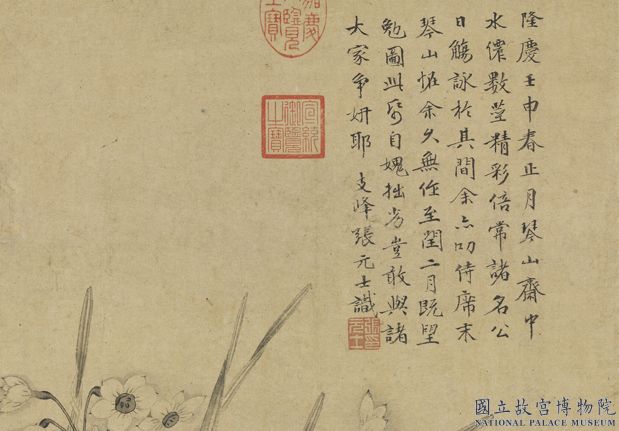 隆慶壬申春正月琴山齋中
水僊數莖精彩倍常諸名公
日觴詠於其間余亦叨侍席末
琴山恠余久無作至閏二月既望
勉圖此爲自媿拙劣豈敢與諸
大家爭妍耶 支峰張元士識
嘉慶御覽之寶
宣統御覽之寶
國立故宮博物院
NATIONAL PALACE MUSEUM